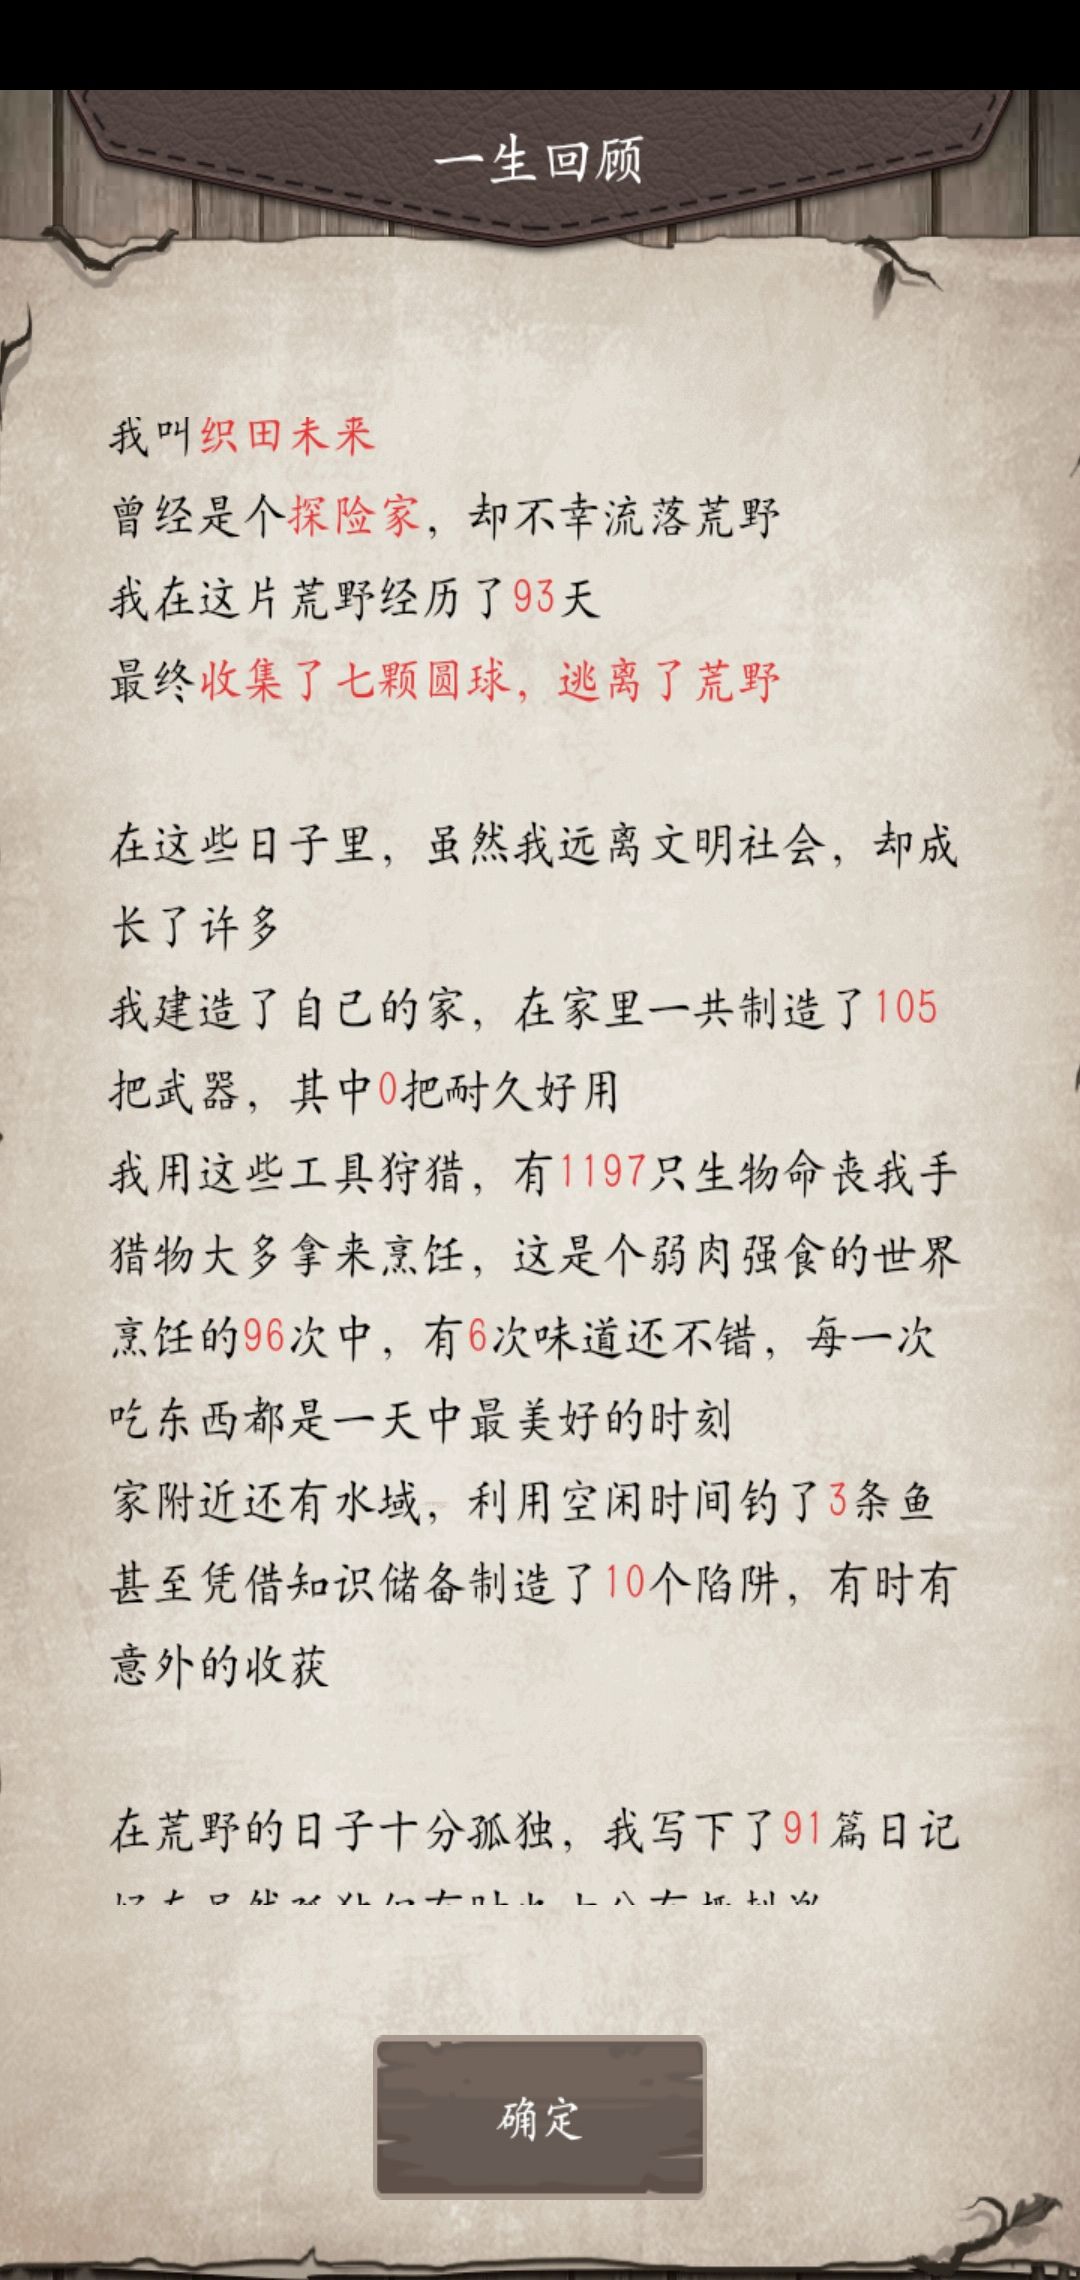 一生回顾
我叫织田未来
曾经是个探险家，却不幸流落荒野
我在这片荒野经历了93天
最终收集了七颗圆球，逃离了荒野
在这些日子里，虽然我远离文明社会，却成
长了许多
我建造了自己的家，在家里一共制造了105
把武器，其中0把耐久好用
我用这些工具狩猎，有1197只生物命丧我手
猎物大多拿来烹饪，这是个弱肉强食的世界
烹饪的96次中，有6次味道还不错，每一次
吃东西都是一天中最美好的时刻
家附近还有水域，利用空闲时间钓了3条鱼
甚至凭借知识储备制造了10个陷阱，有时有
意外的收获
在荒野的日子十分孤独，我写下了91篇日记
确定